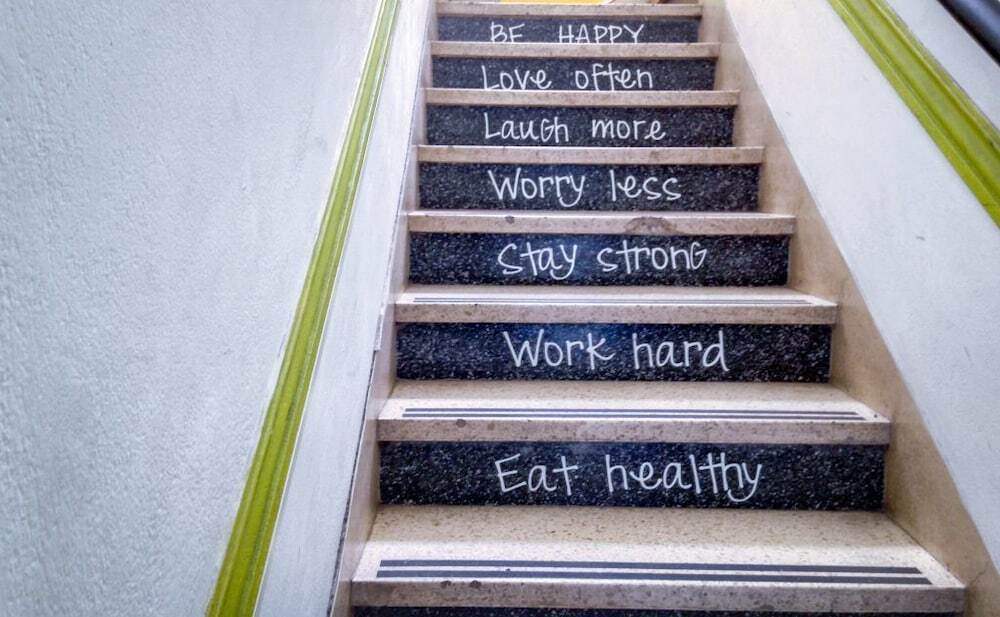 BE HAPPY
Love often
Laugh more
Worry less
Stay strong
Work hard
Eat healthy